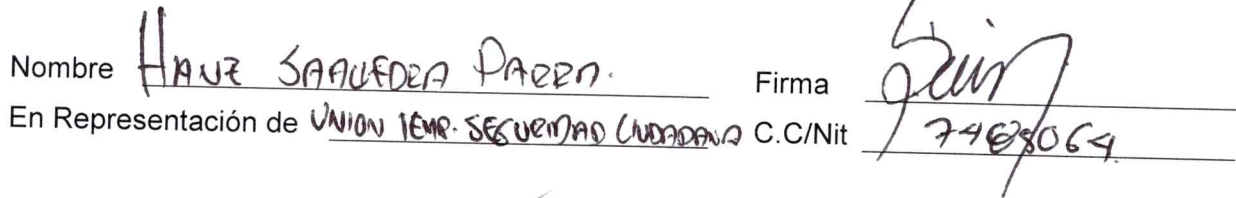 Nombre HANZ SAAVEDRA PARRA. Firma
En Representación de UNION TEMP. SEGURIDAD CIUDADANA C.C/Nit